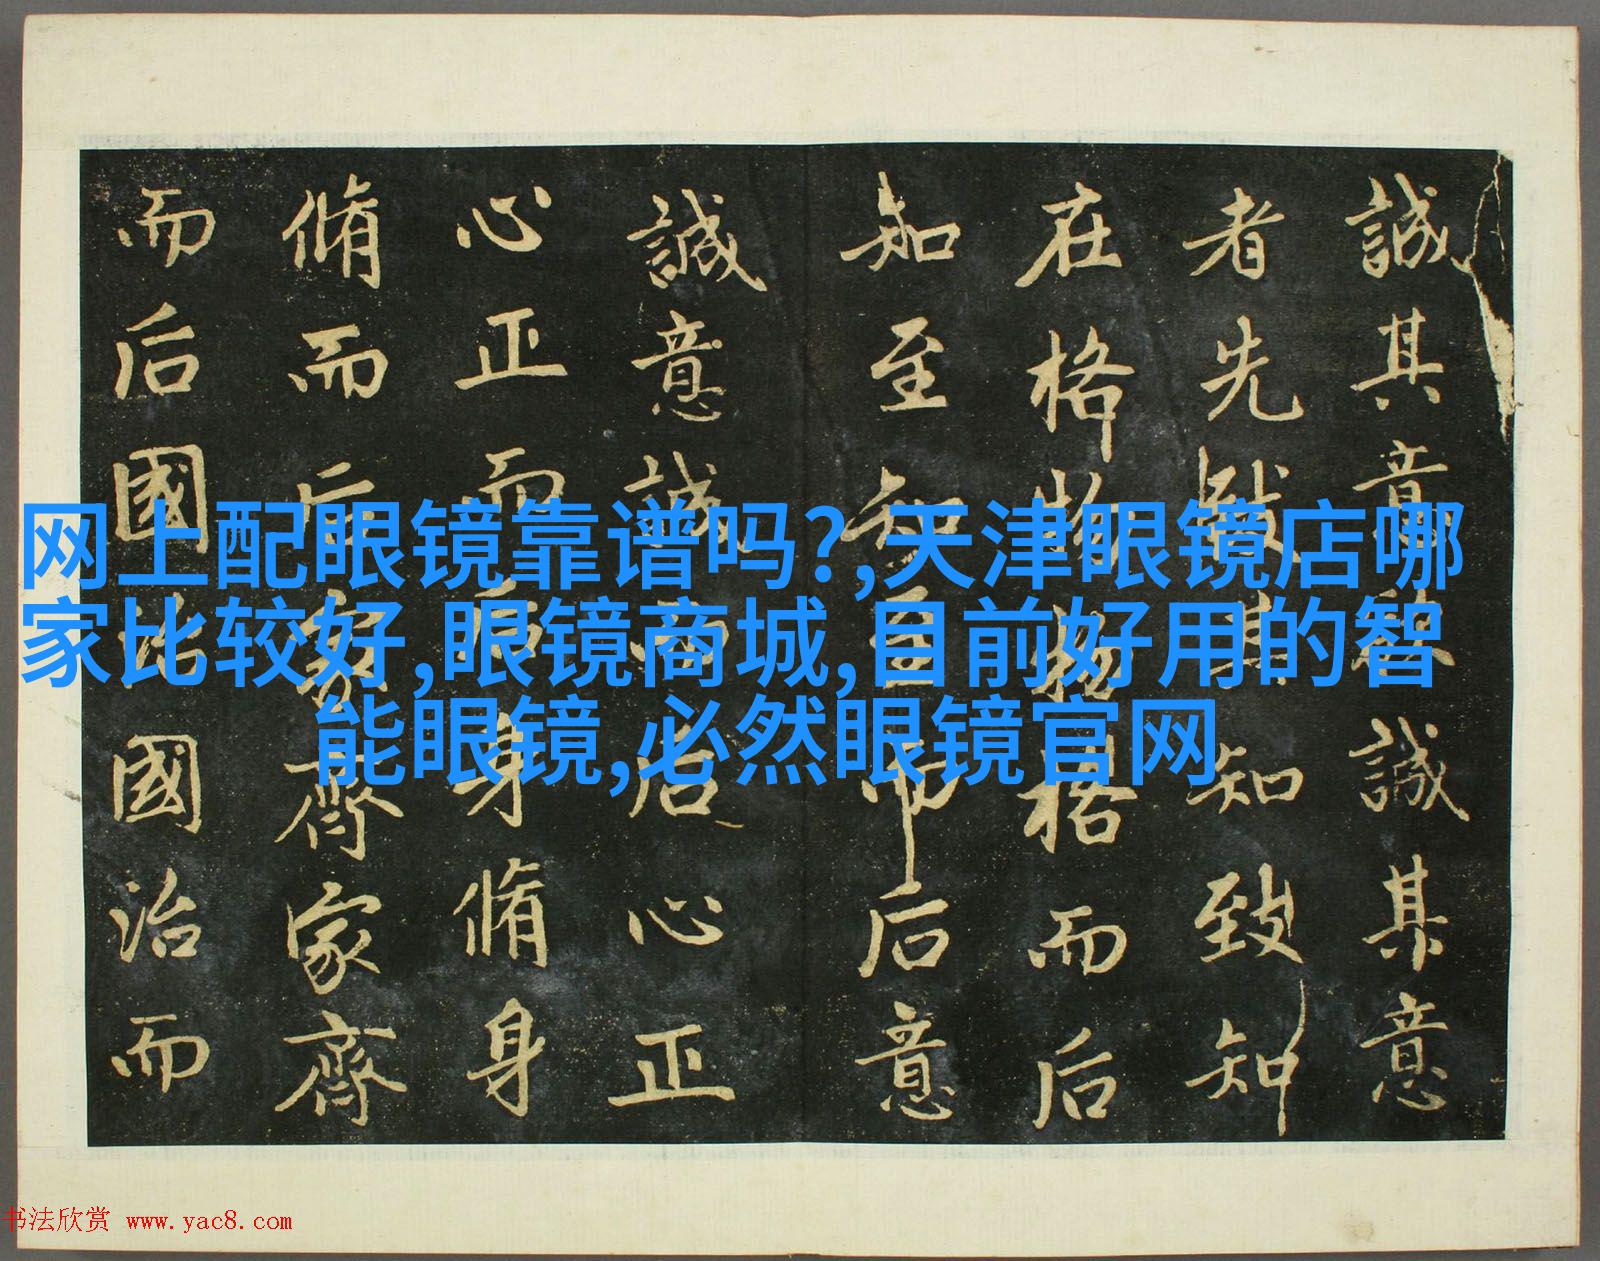 誠其意誠其意
者先致其知致知
在格物物格而后
知至知至而后意
誠意誠而后心正
心正而后身脩身
脩而后家齊家齊
而后國治國治而
网上配眼镜靠谱吗?,天津眼镜店哪
家比较好,眼镜商城,目前好用的智
能眼镜,必然眼镜官网
书法欣赏 www.yac8.com